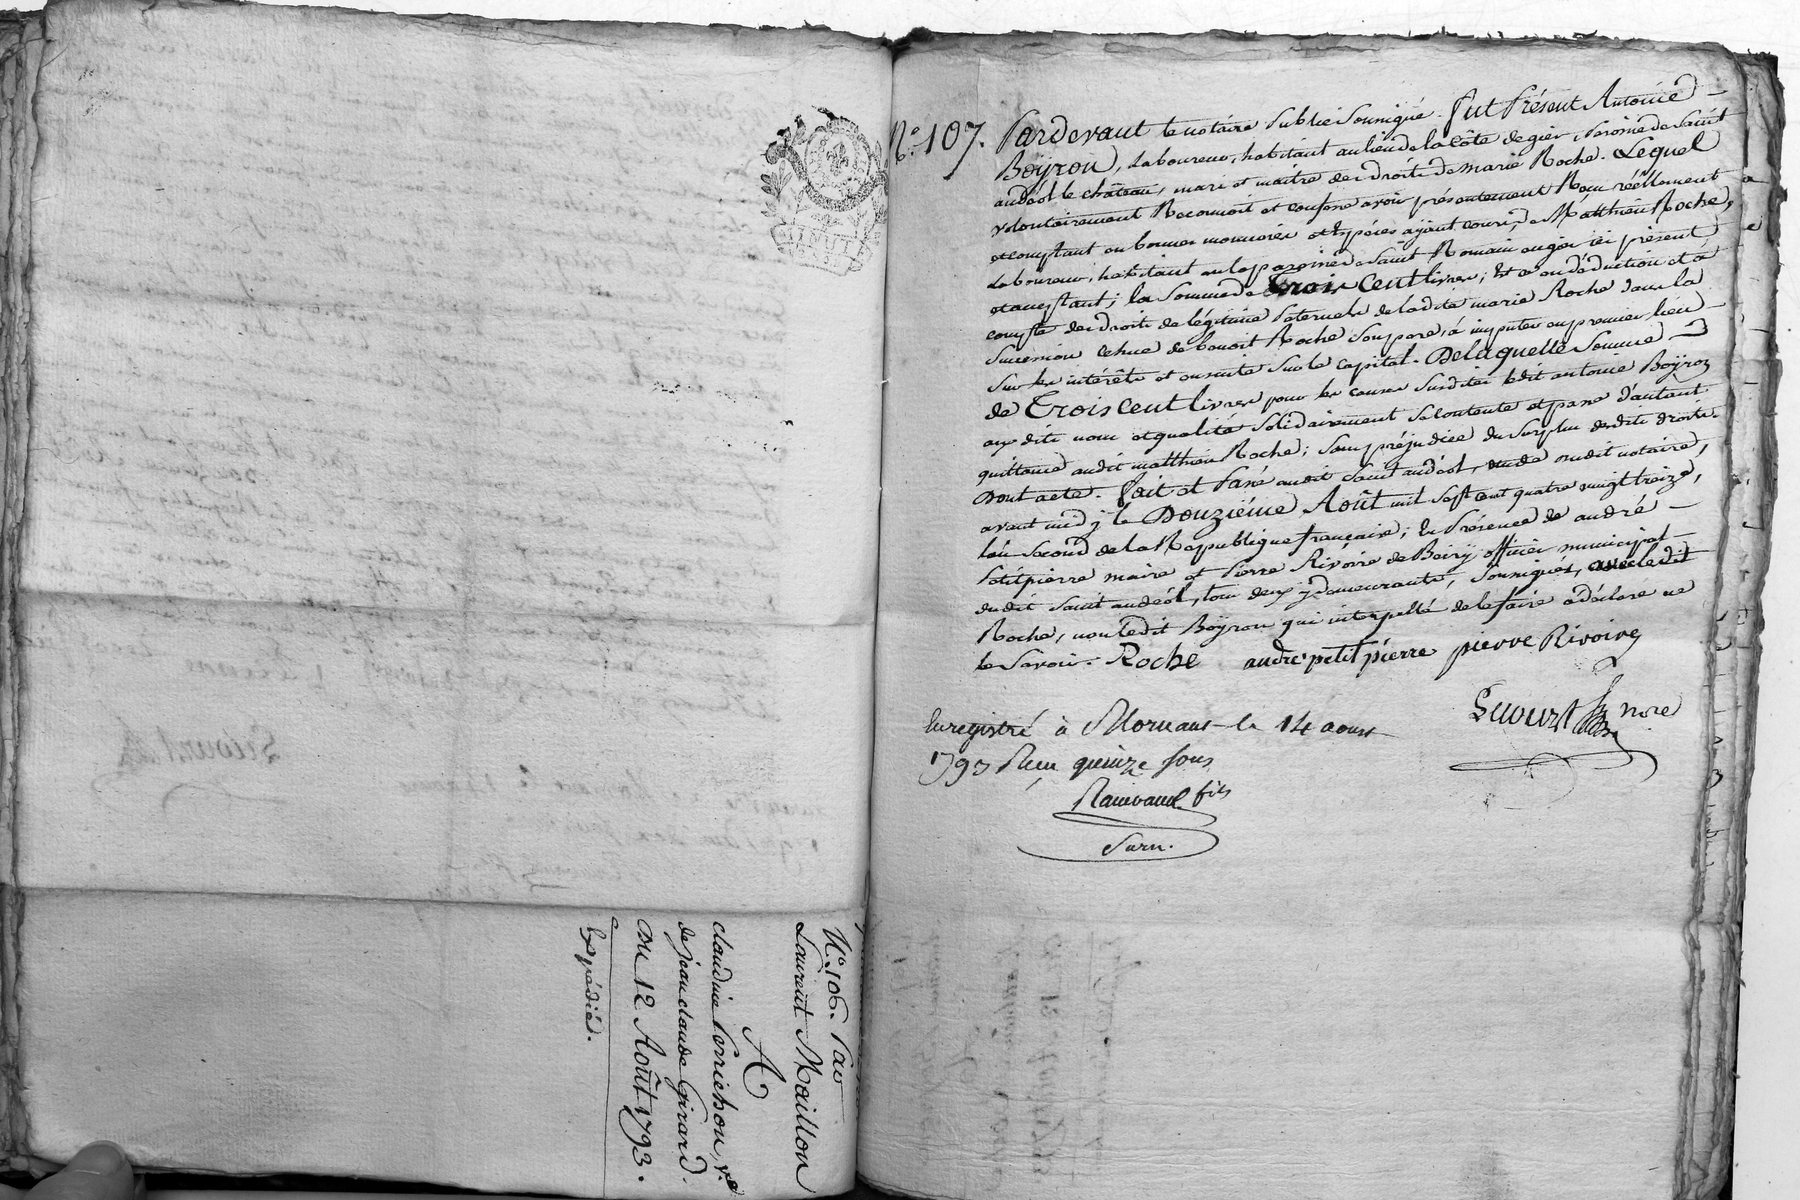 N.° 106. Par
Laurent Maillon
A
claudine Perrichon, v.e
de jean claude Girard.
Du 12 Août 1793.
Expédié.
MINUTE
N.° 107. Pardevant le notaire Public Soussigné. fut Présent Antoine
Boÿron, Laboureur, habitant au lieu de la Côte de gier, Paroisse de Saint
andéol le château, mari et maitre des droits de marie Roche. Lequel
volontairement Reconnoit et confesse avoir présentement Reçu réellement
et comptant en bonnes monnoies et Espéces ayant cours, de Matthieu Roche,
Laboureur, habitant en la paroisse de Saint Romain en gier ici présent
et acceptant; la Somme de Trois Cent livres; Et ce en déduction et à
compte des droits de légitime Paternels de ladite marie Roche dans la
Succession échue de benoit Roche Son pere, à imputer en premier lieu
Sur les intérêts et ensuite Sur le capital. De laquelle Somme
de Trois cent livres pour les causes Susdites ledit antoine Boÿron
aux dits nom et qualité Solidairement Se contente et passe d'autant
quittance audit matthieu Roche; Sans préjudice du Surplus desdits droits.
Dont acte. fait et Passé audit Saint andéol, étude dudit notaire,
avant midy le Douziéme Août mil Sept cent quatre vingt treize,
l'an Second de la République française; En Présence de andré
Petitpierre maire et Pierre Rivoire de Boiry officier municipal
dudit Saint andéol, tous deux y demeurants, Soussignés, avec ledit
Roche, non ledit Boÿron qui interpellé de le faire a déclaré ne
le Savoir. Roche andré petit pierre pierre Rivoire
Secourt nore
Enregistré à Mornant le 14 aoust
1793 Reçu quinze sous
fils